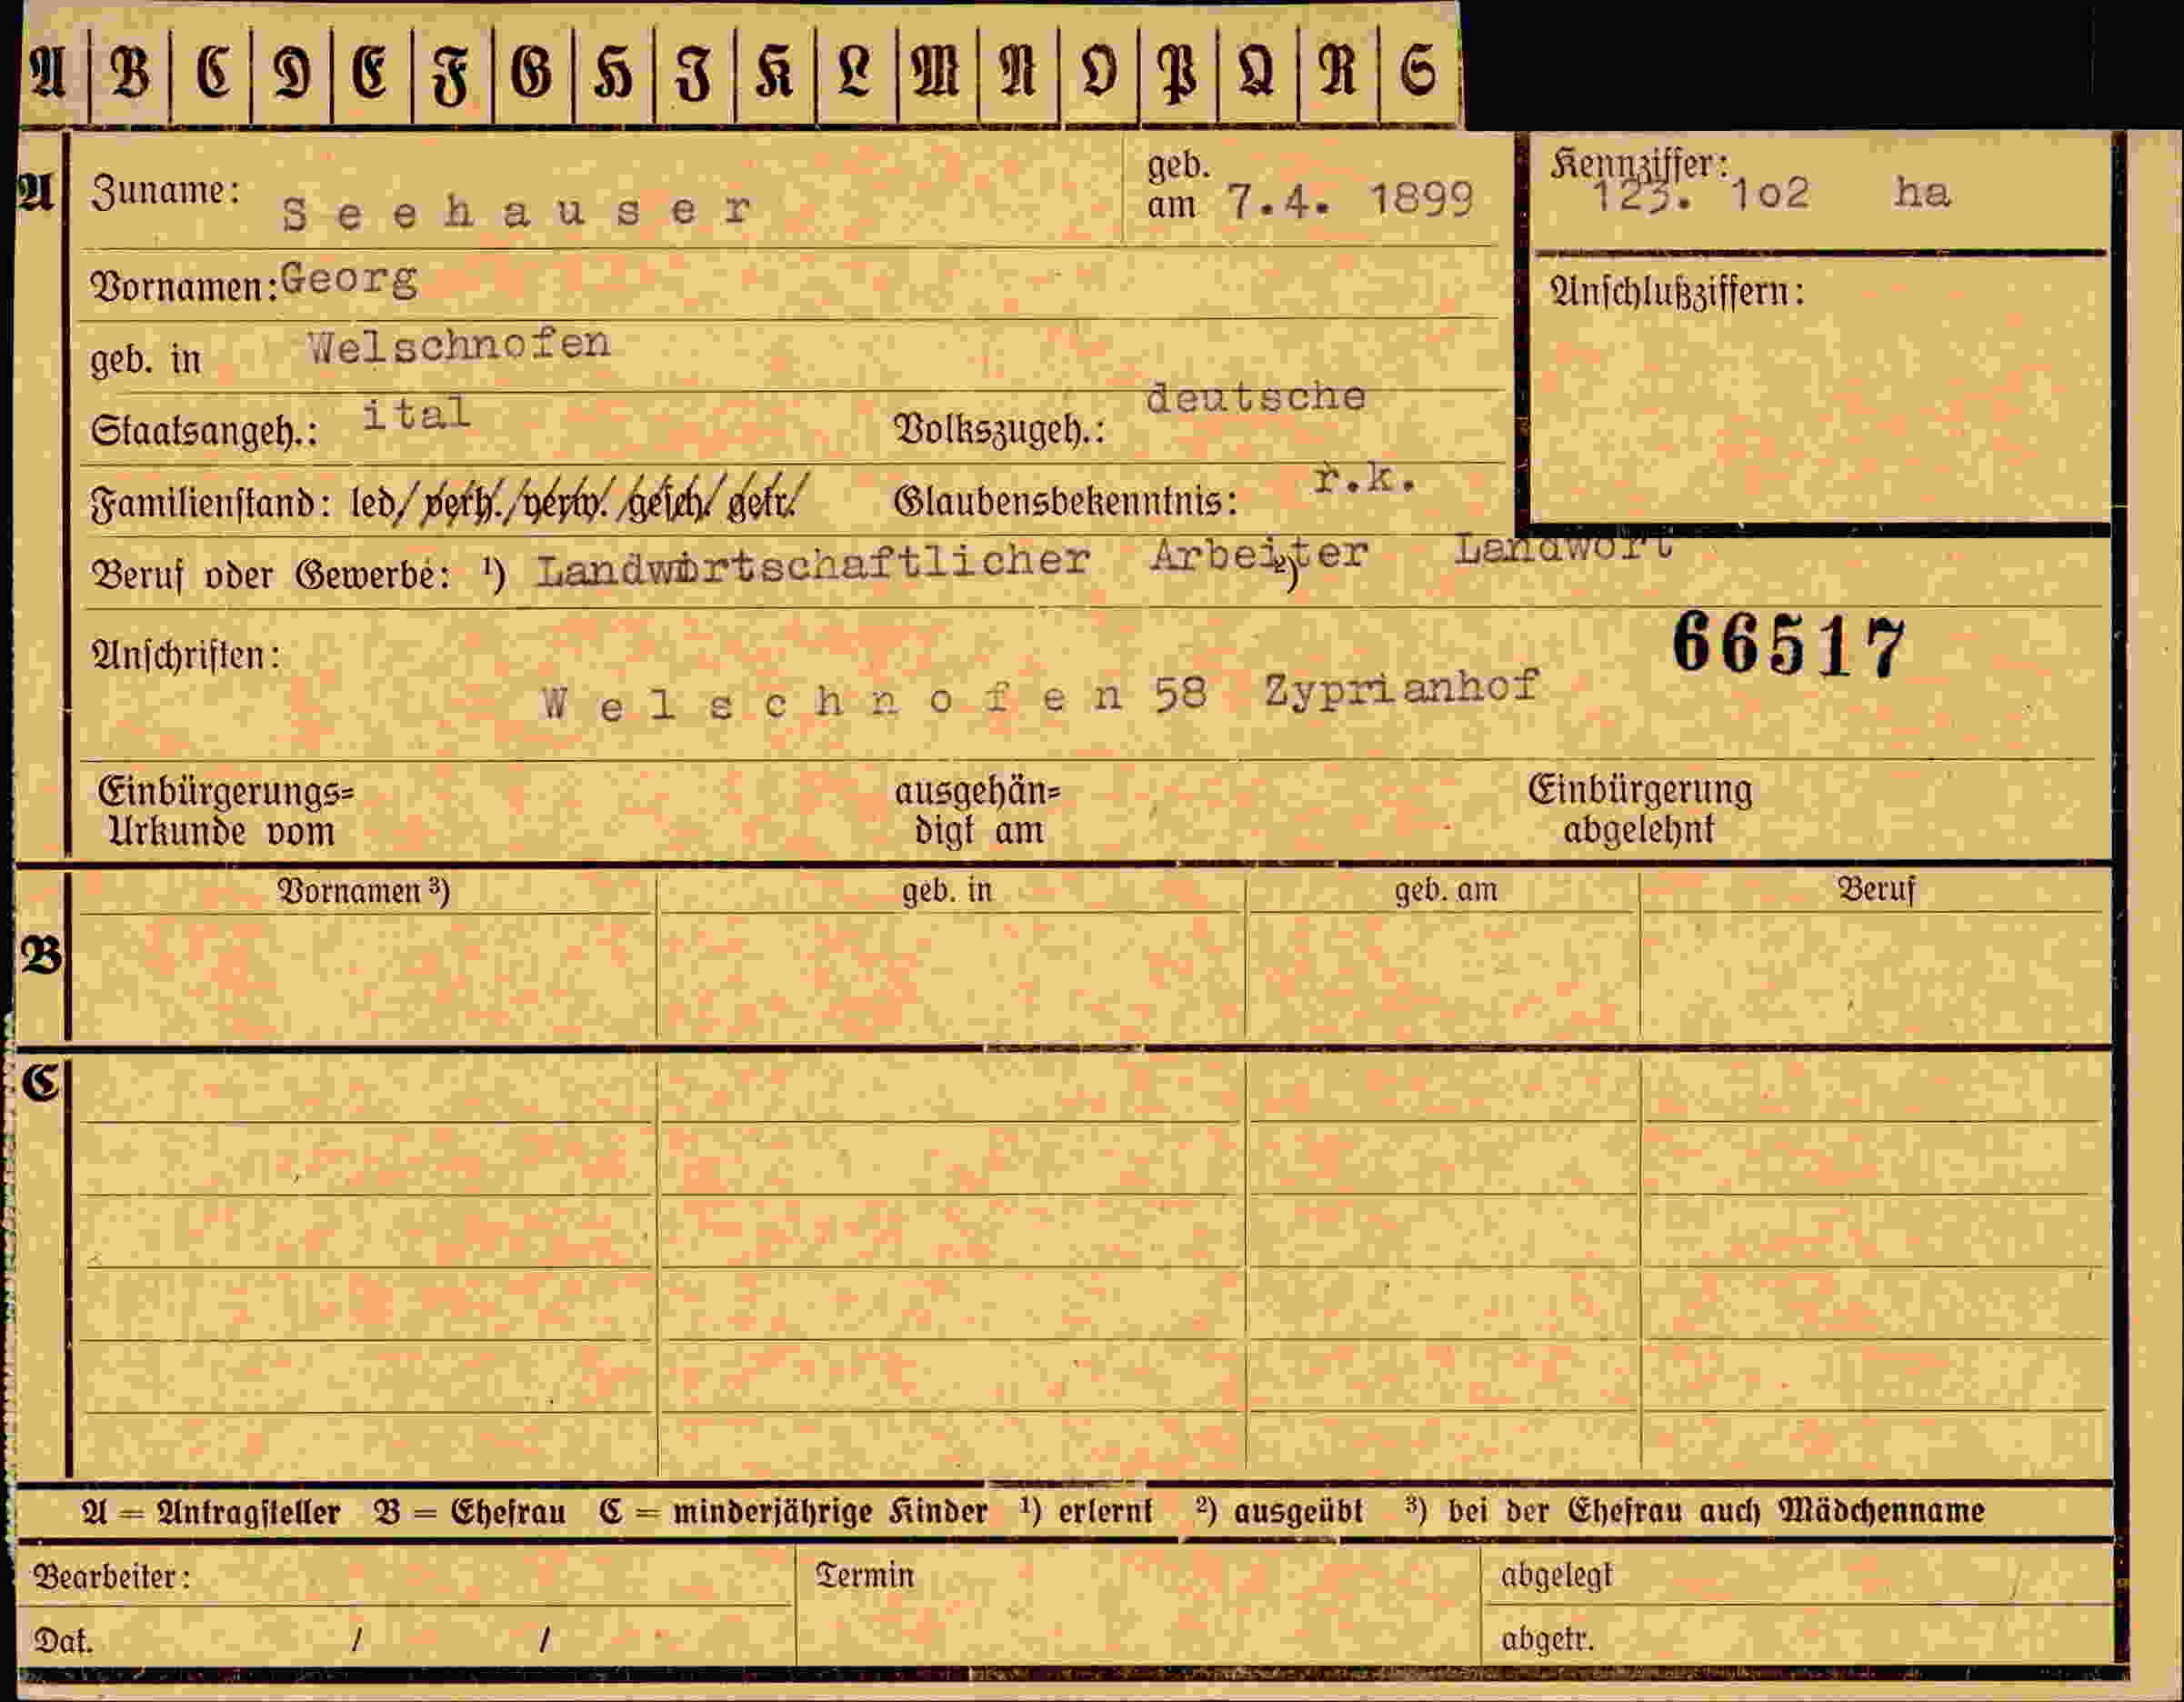 A B C D E F G H J K L M N O P Q R S
A
Zuname: Seehauser
geb. am 7.4. 1899
Kennziffer: 123. 1o2 ha
Vornamen: Georg
Anschlußziffern:
geb. in Welschnofen
Staatsangeh.: ital Volkszugeh.: deutsche
Familienstand: led/verh./verw./gesch/getr. Glaubensbekenntnis: r.k.
Beruf oder Gewerbe: ¹) Landwirtschaftlicher Arbeiter ²) Landwort
66517
Anschriften:
Welschnofen 58 Zyprianhof
Einbürgerungs= ausgehän= Einbürgerung
Urkunde vom digt am abgelehnt
Vornamen ³) geb. in geb. am Beruf
B
C
A = Antragsteller B = Ehefrau C = minderjährige Kinder ¹) erlernt ²) ausgeübt ³) bei der Ehefrau auch Mädchenname
Bearbeiter: Termin abgelegt
Dat. / / abgetr.